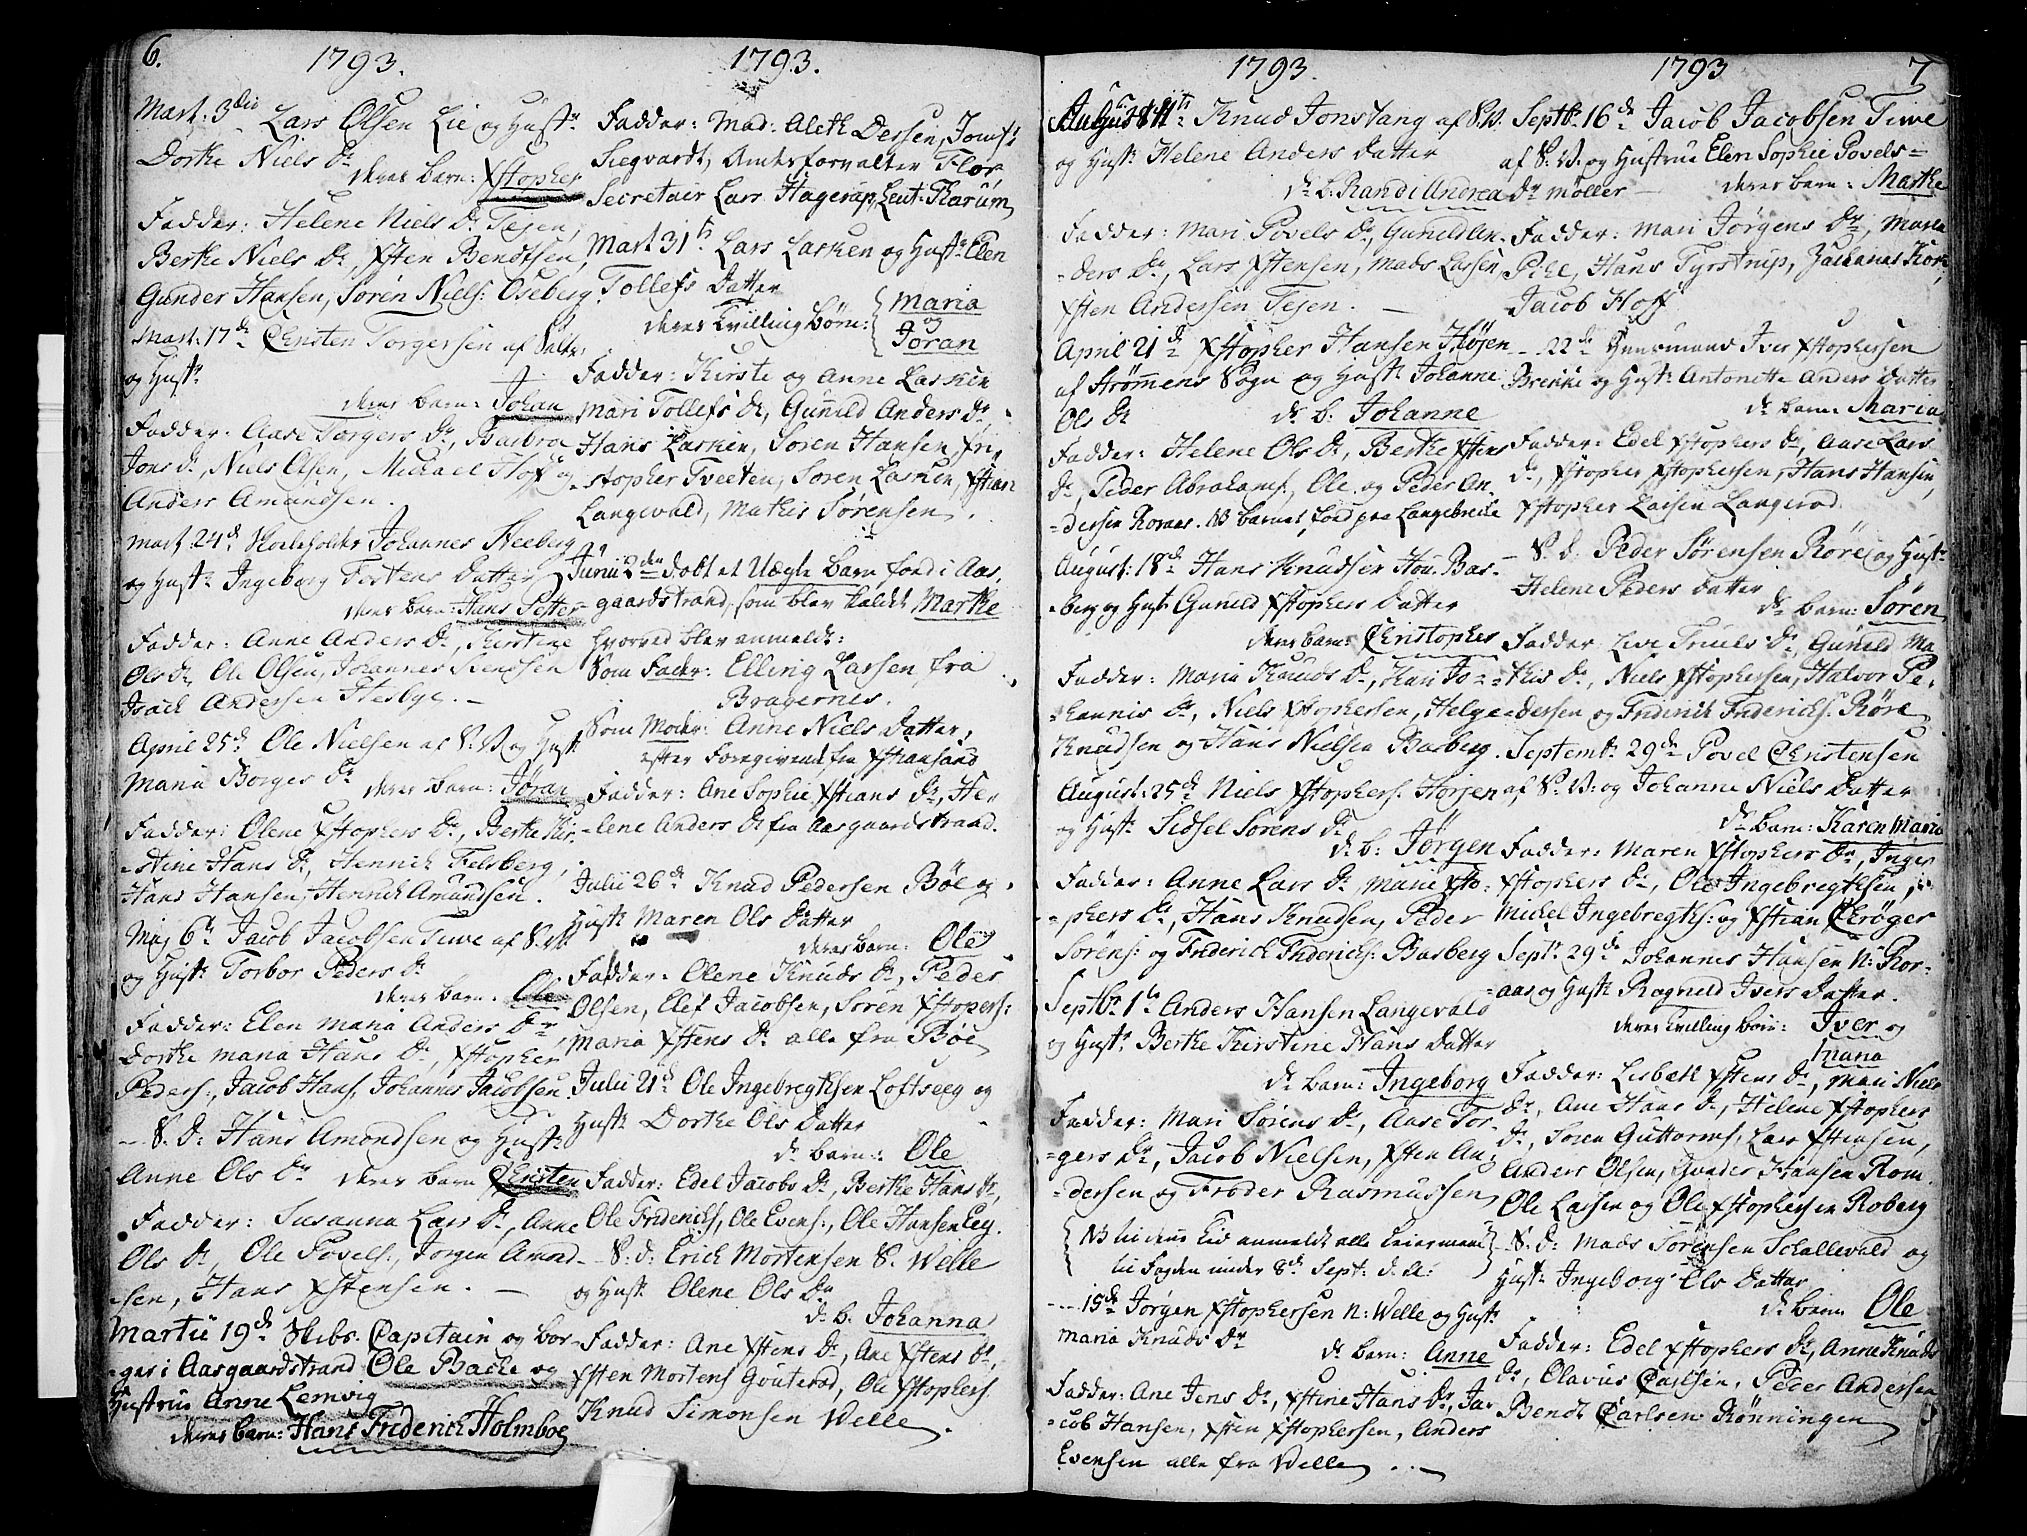 6.
1793.
Mart. 3die Lars Olsen Lie og Hustr
Dorthe Niels Dr
deres barn: Xstopher
Fadder: Helene Niels Dr Tejen,
Berthe Niels Dr, Xsten Bendtsen,
Gunder Hansen, Søren Niels: Oseberg.
Mart. 17de Christen Torgersen af
og Hustr
deres barn: Johan
Fadder: Aase Torgers Dr, Barbroe
Jons dr, Niels Olsen, Michael Hoff og
Anders Amundsen.
Mart. 24de Skoleholder Johannes Heeberg
og Hustr Ingeborg Torstens Datter
deres barn: Hans Petter
Fadder: Anne Anders Dr, Kirstine
Ols Dr, Ole Olsen, Johannes
Isach Andersen Hesbye.
April 25de Ole Nielsen af S. V. og Hustr
Maria Borges Dr
deres barn: Jøran
Fadder: Olene Xstophers Dr, Berthe Kir-
stine Hans Dr, Henrich Felsberg,
Hans Hansen, Henrich Amundsen.
Maj 6te Jacob Jacobsen Tuve af S. V.
og Hustr Torbor Peders Dr
deres barn: Ole
Fadder: Elen Maria Anders Dr,
Dorthe Maria Hans Dr, Xstopher
Peders:, Jacob Hans, Johannes Jacobsen.
--- S. D: Hans Amondsen og Hustr
Anne Ols Dr deres barn Christen
Fadder: Susanna Lars Dr, Anne
Ols Dr, Ole Povels:, Jorgen Amond-
sen, Hans Xstensen.
Martii 19de Skibs Capitain og Bor-
ger i Aasgaardstrand Ole Bache og
Hustrue Anne Lemvig
deres barn: Hans Friderich Holmboe
1793.
Fadder: Mad: Aleth Dessen, Jomfr
Siegvardt, Amtsforvalter Flor
Secretair Lars Hagerup, Leut: Karum
Mart. 31te Lars Lasken og Hustr Elen
Tollefs Datter
deres tvilling børn: Maria
og
Joran
Fadder: Kirste og Anne Lasken
Mari Tollefs dr, Gunild Anders dr,
Hans Lasken, Soren Hansen, Kri-
stopher Tveeten, Soren Lasken, Xstian
Langevald, Mathis Sørensen.
Junii 2den døbt et Uægte barn fød i Aas-
gaardstrand, som blev kaldet Marthe
hvorved blev anmeldt:
Som Fader: Elling Larsen fra
Bragernes.
Som Moder: Anne Niels Datter,
efter Foregivende, fra Xstiansand
Fadder: Ane Sophie Xstians Dr, He-
lene Anders Dr fra Aasgaardstrand.
Julii 26de Knud Pedersen Bøe og
Hustr Maren Ols Datter
deres barn: Ole
Fadder: Olene Knuds Dr, Peder
Olsen, Elef Jacobsen, Søren Xstophers:
Maria Xstens Dr alle fra Bøe
Julii 21de Ole Ingebregthsen Loftseeg og
Hustr Dorthe Ols Datter
dr barn: Ole
Fadder: Edel Jacobs Dr, Berthe Hans dr,
Ole Friderichs, Ole Evens:, Ole Hansen Eeg.
-- S. d: Erich Mortensen S. Welle
og Hustr Olene Ols Dr
dr b. Johanna
Fadder: Ane Xstens Dr, Ane Xstens Dr,
Xsten Mortens Gouterød, Ole Xstophers
Knud Simonsen Welle.
1793.
August 11te Knud Jonstang af S. V.
og Hustr Helene Anders Datter
dr b. Randi Andrea
Fadder: Mari Povels Dr, Gunild An-
ders Dr, Lars Xstensen, Mads Larsen,
Xsten Andersen Tejen.
April 21de Xstopher Hansen Højen
af Strømmens Sogn og Hustr Johanne
Ols Dr
dr b. Johanne
Fadder: Helene Ols Dr, Berthe Xstens
Dr, Peder Abrahams, Ole og Peder An-
dersen Romes. NB barnet fød paa Langebreke
August: 18de Hans Knudsen Hou Bas-
berg og Hustr Gunild Xstophers Datter
deres barn: Christopher
Fadder: Maria Knuds Dr, Kari Jo-
hannis Dr, Niels Xstophersen, Helge
Knudsen og Hans Nielsen Basberg.
August: 25de Niels Xstophers: Horjen
og Hustr Sidsel Sorens Dr
dr b: Jørgen
Fadder: Anne Lars Dr Marie Xsto-
phers Dr, Hans Knudsen, Peder
Sørens: og Friderich Friderichs: Basberg
Septbr 1te Anders Hansen Langevald
og Hustr Berthe Kirstine Hans Datter
dr barn: Ingeborg
Fadder: Mari Sorens Dr, Aase Tor-
gers Dr, Jacob Nielsen, Xsten An-
dersen og Troder Rasmussen
NB til denne Tid anmeldt alle Leiermaal
til Fogden under 8de Sept: d. A:
--- 15de Jørgen Xstophersen N: Welle og Hustr
Maria Knuds Dr
dr barn: Anne
Fadder: Ane Jens Dr, Xstine Hans Dr, Ja-
cob Hansen, Xsten Xstophersen, Anders
Evensen alle fra Welle.
1793
7
Septbr 16de Jacob Jacobsen Tuve
af S: V. og Hustrue Elen Sophie Povels-
Dr Møller deres barn: Marthe
Fadder: Mari Jörgens Dr, Maria
Pihl, Hans Tyrstrup, Zacharias
Jacob Hoff
-- 22de Hunsmand Iver Xstophersen
Brekke og Hustr Antonette Anders Datter
dr barn: Maria
Fadder: Edel Xstophers Dr, Aase Lars
Dr, Xstopher Xstophersen, Hans Hansen,
Xstopher Larsen Langerød.
- S. d. Peder Sørensen Røre og Hustr
Helene Peders Datter
dr barn: Søren
Fadder Live Truels Dr, Gunild Ma-
this Dr, Niels Xstophersen, Halvor Pe-
dersen og Friderich Friderichs: Röre
Septembr 29de Povel Christensen
af S: V: og Johanne Niels Datter
dr barn: Karen Maria
Fadder: Maren Xstophers Dr, Inger
Xstophers Dr, Ole Ingebregthsen,
Michel Ingebregths: og Xstian Chröger
Septr 29de Johannes Hansen N: Ror-
aas og Hustr Ragnild Ivers Datter.
deres tvilling børn: Iver og
Maria
Fadder: Lisbeth Xstens Dr, Mari Niels
Dr, Ane Hans Dr, Helene Xstophers
Dr, Soren Guttorms, Lars Xstensen,
Anders Olsen, Gunder Hansen Rom.
Ole Larsen og Ole Xstophersen Roberg
-- S. D: Mads Sorensen Schallevald og
Hustr Ingeborg Ols Datter
dr barn Ole
Fadder: Edel Xstophers Dr, Anne Knuds
Dr, Olavus Carlsen, Peder Andersen,
Bendt Carlsen Rønningen